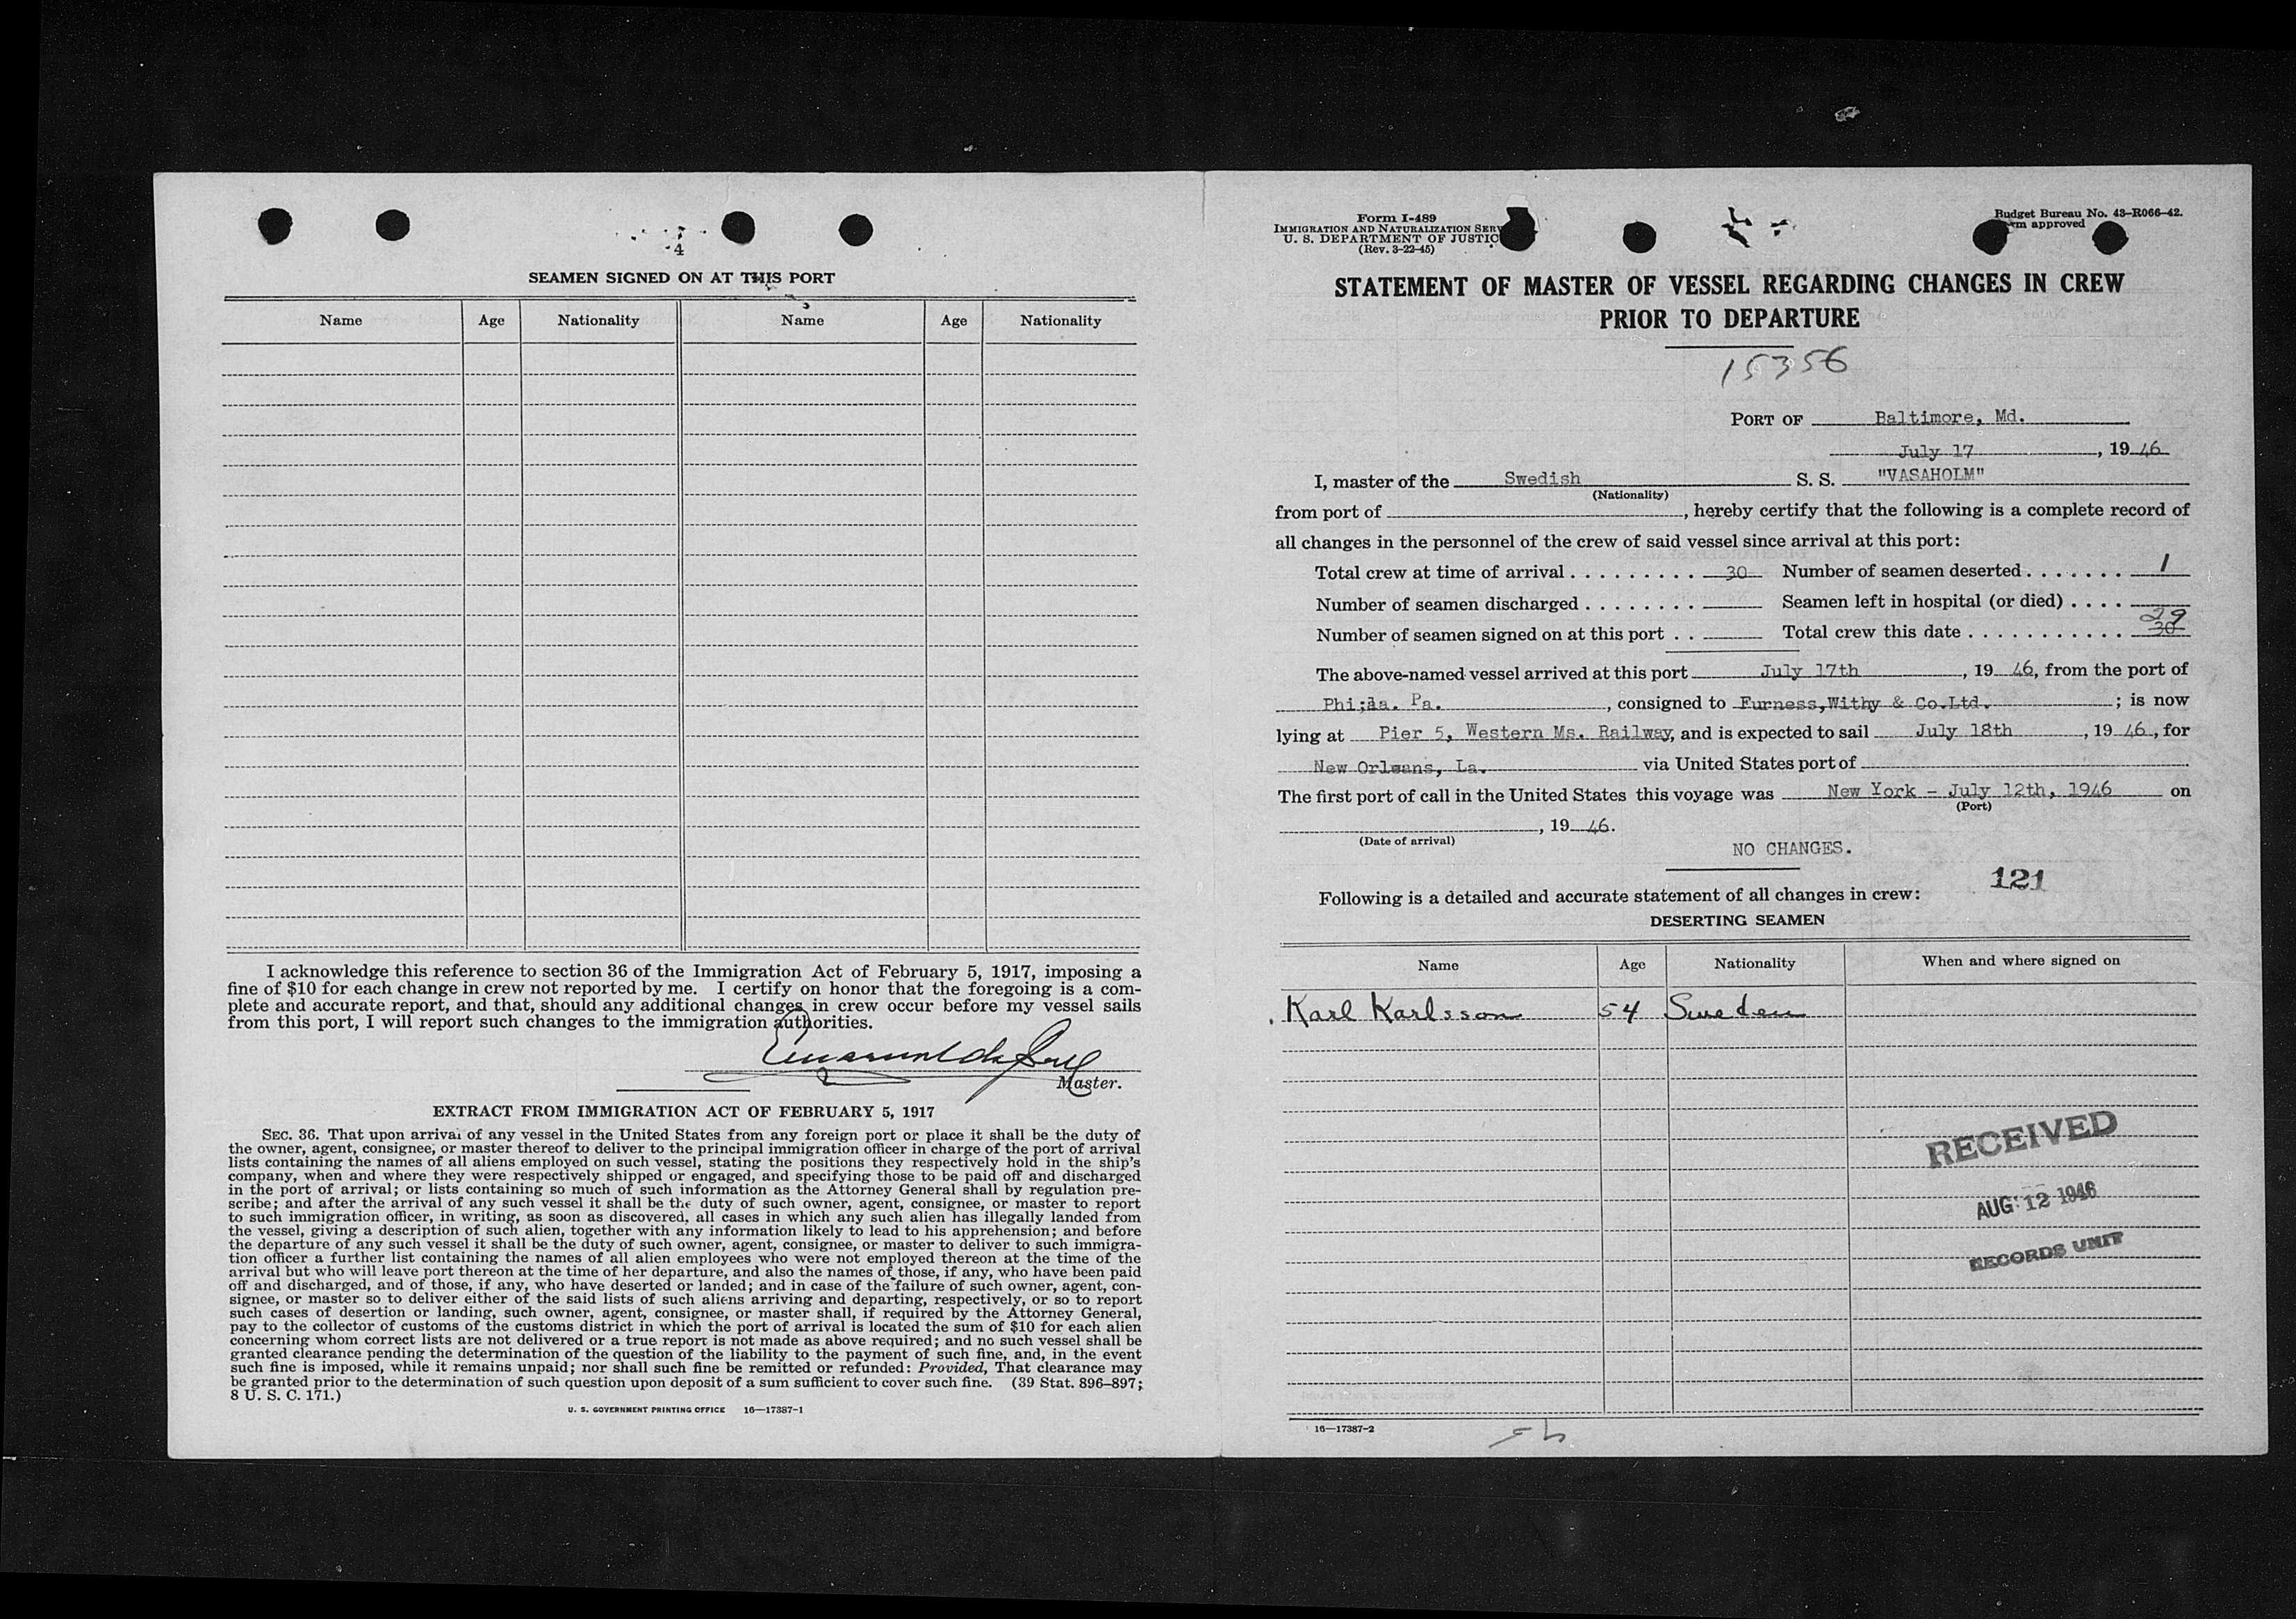 4
SEAMEN SIGNED ON AT THIS PORT
Name Age Nationality Name Age Nationality
I acknowledge this reference to section 36 of the Immigration Act of February 5, 1917, imposing a
fine of $10 for each change in crew not reported by me. I certify on honor that the foregoing is a com-
plete and accurate report, and that, should any additional changes in crew occur before my vessel sails
from this port, I will report such changes to the immigration authorities.
Master.
EXTRACT FROM IMMIGRATION ACT OF FEBRUARY 5, 1917
SEC. 36. That upon arrival of any vessel in the United States from any foreign port or place it shall be the duty of
the owner, agent, consignee, or master thereof to deliver to the principal immigration officer in charge of the port of arrival
lists containing the names of all aliens employed on such vessel, stating the positions they respectively hold in the ship's
company, when and where they were respectively shipped or engaged, and specifying those to be paid off and discharged
in the port of arrival; or lists containing so much of such information as the Attorney General shall by regulation pre-
scribe; and after the arrival of any such vessel it shall be the duty of such owner, agent, consignee, or master to report
to such immigration officer, in writing, as soon as discovered, all cases in which any such alien has illegally landed from
the vessel, giving a description of such alien, together with any information likely to lead to his apprehension; and before
the departure of any such vessel it shall be the duty of such owner, agent, consignee, or master to deliver to such immigra-
tion officer a further list containing the names of all alien employees who were not employed thereon at the time of the
arrival but who will leave port thereon at the time of her departure, and also the names of those, if any, who have been paid
off and discharged, and of those, if any, who have deserted or landed; and in case of the failure of such owner, agent, con-
signee, or master so to deliver either of the said lists of such aliens arriving and departing, respectively, or so to report
such cases of desertion or landing, such owner, agent, consignee, or master shall, if required by the Attorney General,
pay to the collector of customs of the customs district in which the port of arrival is located the sum of $10 for each alien
concerning whom correct lists are not delivered or a true report is not made as above required; and no such vessel shall be
granted clearance pending the determination of the question of the liability to the payment of such fine, and, in the event
such fine is imposed, while it remains unpaid; nor shall such fine be remitted or refunded: Provided, That clearance may
be granted prior to the determination of such question upon deposit of a sum sufficient to cover such fine. (39 Stat. 896–897;
8 U. S. C. 171.)
U. S. GOVERNMENT PRINTING OFFICE 16—17387-1
Form I-489
IMMIGRATION AND NATURALIZATION SERV
U. S. DEPARTMENT OF JUSTIC
(Rev. 3-22-45)
Budget Bureau No. 43-R066-42.
m approved
STATEMENT OF MASTER OF VESSEL REGARDING CHANGES IN CREW
PRIOR TO DEPARTURE
15356
PORT OF Baltimore, Md.
July 17, 1946
I, master of the Swedish S. S. "VASAHOLM"
(Nationality)
from port of , hereby certify that the following is a complete record of
all changes in the personnel of the crew of said vessel since arrival at this port:
Total crew at time of arrival . . . . . . . . . . 30 Number of seamen deserted . . . . . . . 1
Number of seamen discharged . . . . . . . . Seamen left in hospital (or died) . . . .
29
Number of seamen signed on at this port . . Total crew this date . . . . . . . . . . . . 30
The above-named vessel arrived at this port July 17th, 19 46, from the port of
Phi;la. Pa. , consigned to Furness,Withy & Co.Ltd. ; is now
lying at Pier 5, Western Ms. Railway, and is expected to sail July 18th , 19 46, for
New Orleans, La. via United States port of
The first port of call in the United States this voyage was New York - July 12th, 1946 on
(Port)
, 19 46.
(Date of arrival)
NO CHANGES.
121
Following is a detailed and accurate statement of all changes in crew:
DESERTING SEAMEN
Name Age Nationality When and where signed on
Karl Karlsson 54 Sweden
RECEIVED
AUG 12 1946
RECORDS UNIT
16—17387-2